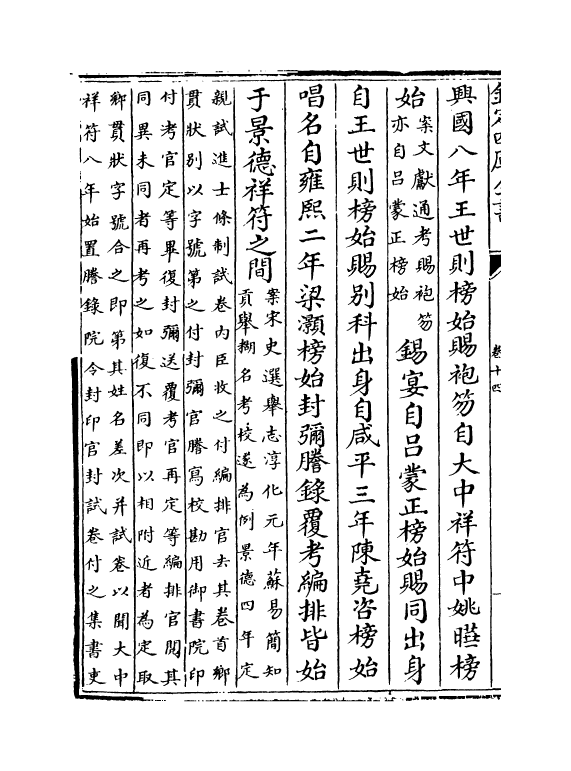 欽定四庫全書
卷十四
興國八年王世則榜始賜袍笏自大中祥符中姚曄榜
始案文獻通考賜袍笏亦自呂蒙正榜始錫宴自呂蒙正榜始賜同出身
自王世則榜始賜别科出身自咸平三年陳堯咨榜始
唱名自雍熙二年梁灝榜始封彌謄錄覆考編排皆始
于景德祥符之間案宋史選舉志淳化元年蘇易簡知貢舉糊名考校遂為例景德四年定
親試進士條制試卷内臣收之付編排官去其卷首鄉
貫狀别以字號第之付封彌官謄寫校勘用御書院印
付考官定等畢復封彌送覆考官再定等編排官閱其
同異未同者再考之如復不同即以相附近者為定取
鄉貫狀字號合之即第其姓名差次并試卷以聞大中
祥符八年始置謄錄院令封印官封試卷付之集書吏